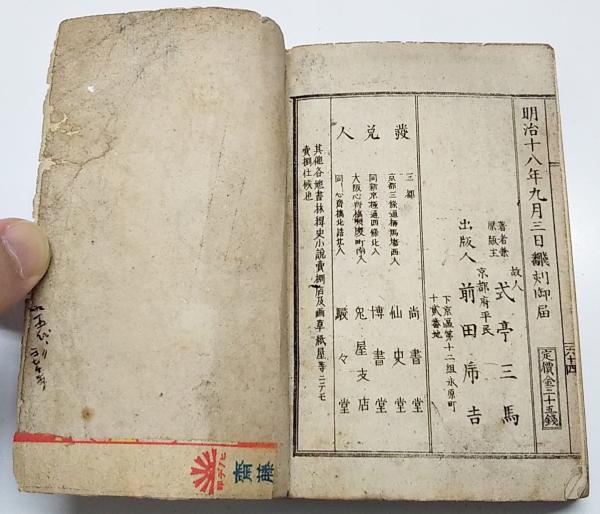 明治十八年九月三日飜刻御届
定價金三十五錢
著者兼
原版主
故人
式亭三馬
京都府平民
出版人
前田席吉
下京區第十二組永原町
十貳番地
發兌人
三都
京都三條通柳馬場西入
尚書堂
同新京極通四條北入
仙史堂
大阪心齊橋順慶町南入
博書堂
兎屋支店
同心齊橋北詰北入
駸々堂
其他各地書林稗史小說賣捌店及画草紙屋等ニテモ
賣捌仕候也
齋藤